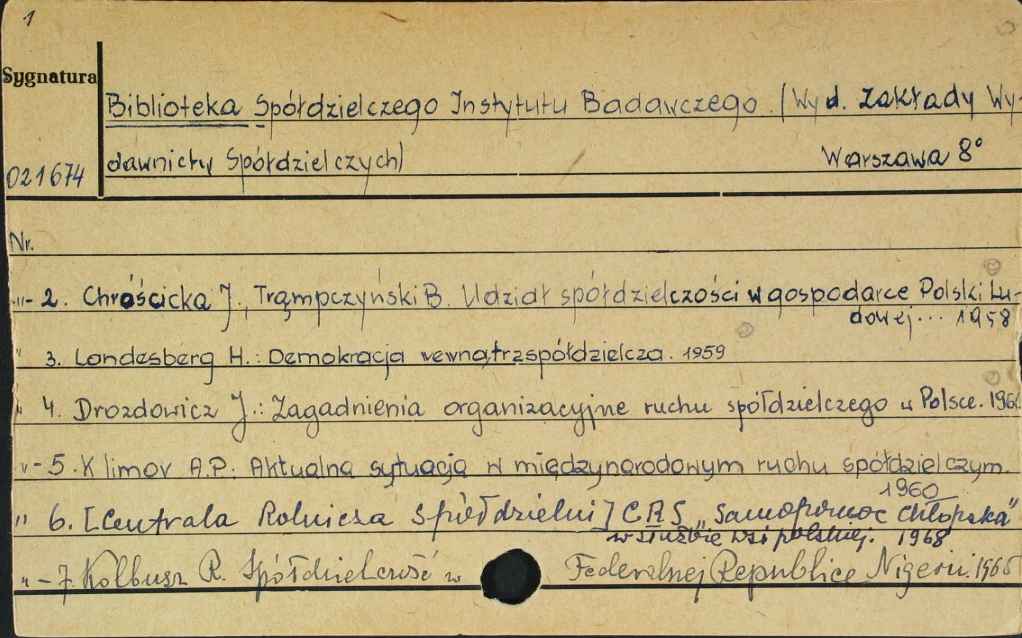 1
Sygnatura
Biblioteka Spółdzielczego Instytutu Badawczego. (Wyd. Zakłady Wy-
dawnictw Spółdzielczych) Warszawa 8°
021674
Nr.
"- 2. Chróścicka J., Trąmpczyński B. Udział spółdzielczości w gospodarce Polski Lu-
dowej... 1958
" 3. Landesberg H.: Demokracja wewnątrzspółdzielcza. 1959
" 4. Drozdowicz J.: Zagadnienia organizacyjne ruchu spółdzielczego w Polsce.
"- 5. Klimov A.P. Aktualna sytuacja w międzynarodowym ruchu spółdzielczym.
1960
" 6. [Centrala Rolnicza Spółdzielni] CRS „Samopomoc Chłopska"
w służbie wsi polskiej. 1968
"- 7. Kolbusz R. Spółdzielczość w Federalnej Republice Nigerii.